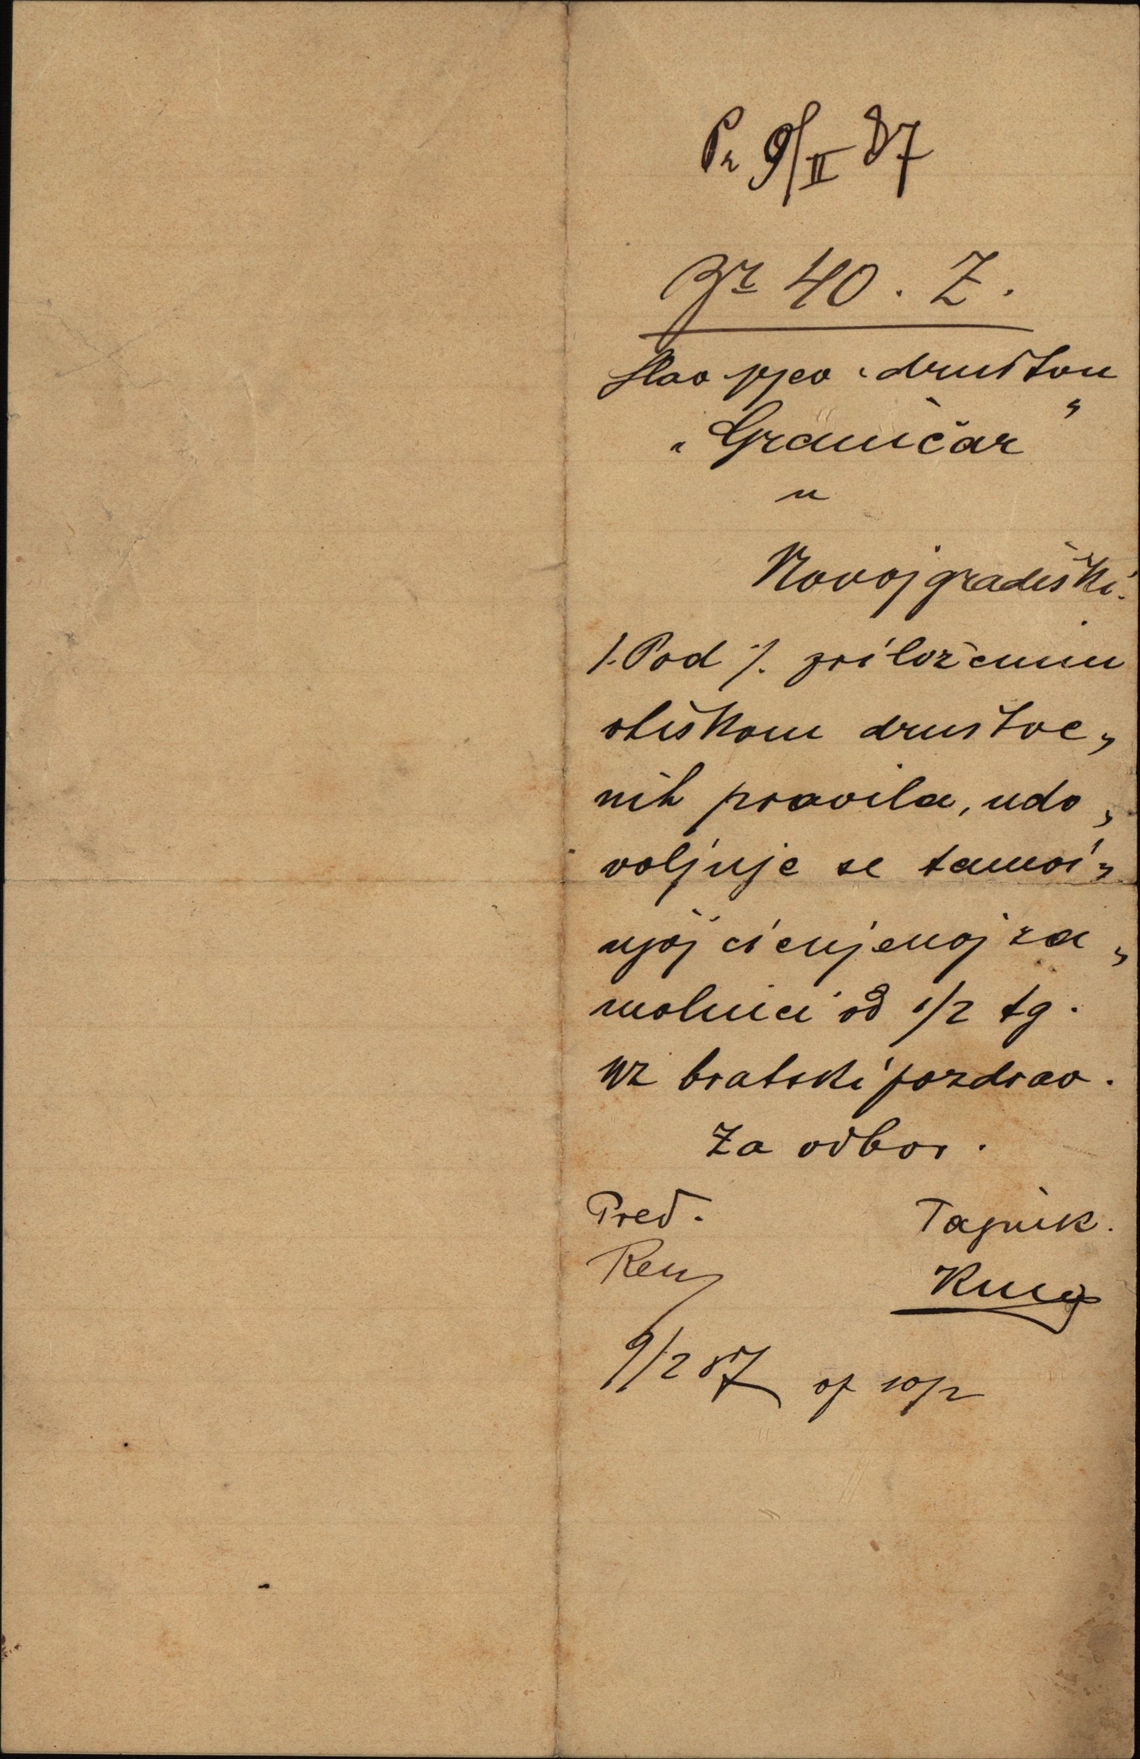 Pr 9/II 87
Br 40. Z.
Slav pjev. društvu
„Graničar"
u
Novojgradiški.
1. Pod ·/. priloženim
otiskom društve„
nih pravila, udo„
voljuje se tamoš„
njoj cienjenoj za„
molnici od 1/2 tg.
Uz bratski pozdrav.
Za odbor.
Pred. Tajnik.
9/2 87 of 10/2